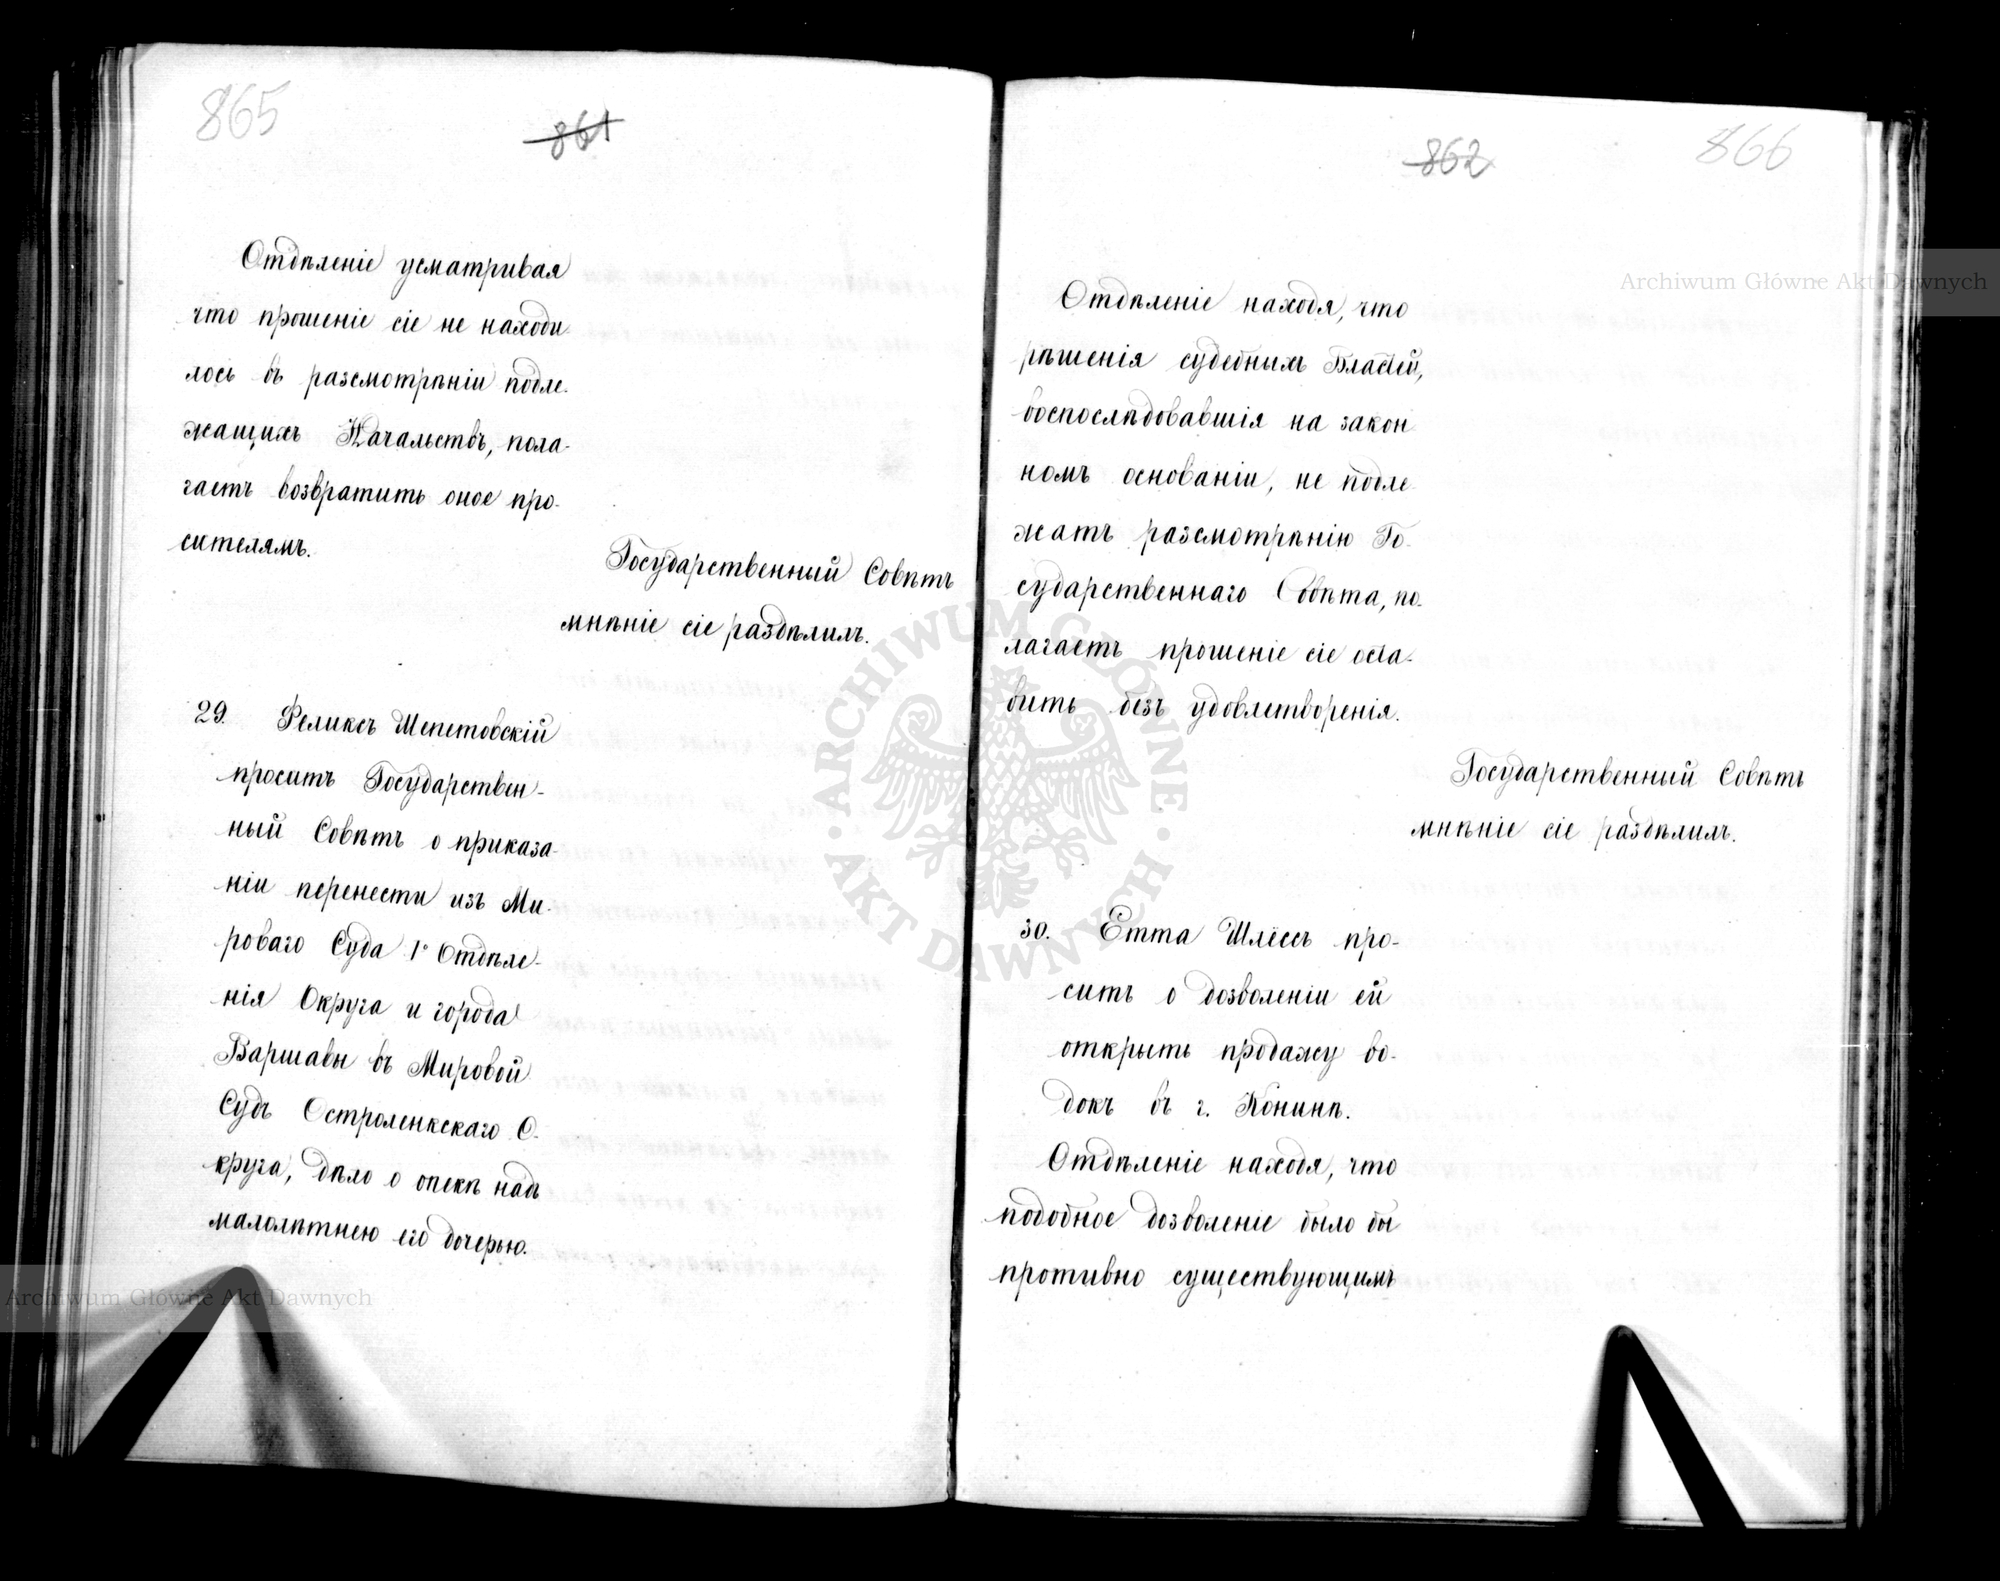 865
861
Отдѣленіе усматривая
что прошеніе сіе не находи
лось въ разсмотрѣніи подле-
жащихъ Начальствъ, пола-
гаетъ возвратить оное про-
сителямъ.
Государственный Совѣтъ
мнѣніе сіе раздѣлилъ.
29. Феликсъ Шепетовскій
проситъ Государствен-
ный Совѣтъ о приказа-
ніи перенести изъ Ми-
роваго Суда 1º Отдѣле-
нія Округа и города
Варшавы въ Мировой
Судъ Остроленкскаго О-
круга, дѣло о опекѣ надъ
малолѣтнею его дочерью.
862
866
Отдѣленіе находя, что
рѣшенія судебныхъ Властей,
воспослѣдовавшія на закон
номъ основаніи, не подле
жатъ разсмотрѣнію Го-
сударственнаго Совѣта, по-
лагаетъ прошеніе сіе оста-
вить безъ удовлетворенія.
Государственный Совѣтъ
мнѣніе сіе раздѣлилъ.
30. Етта Шлёссъ про-
ситъ о дозволеніи ей
открыть продажу во-
докъ въ г. Конинѣ.
Отдѣленіе находя, что
подобное дозволеніе было бы
противно существующимъ
Archiwum Główne Akt Dawnych
Archiwum Główne Akt Dawnych
ARCHIWUM GŁÓWNE · AKT DAWNYCH ·